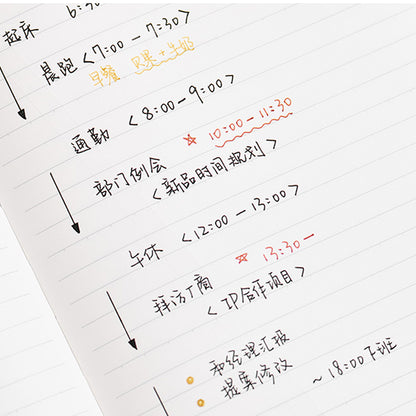 起床 6:30
晨跑 <7:00-7:30>
早餐 贝果+牛奶
通勤 <8:00-9:00>
部门例会 ☆ 10:00-11:30
<新品时间规划>
午休 <12:00-13:00>
拜访厂商 ☆ 13:30-
<IP合作项目>
和经理汇报
提案修改 ~18:00下班